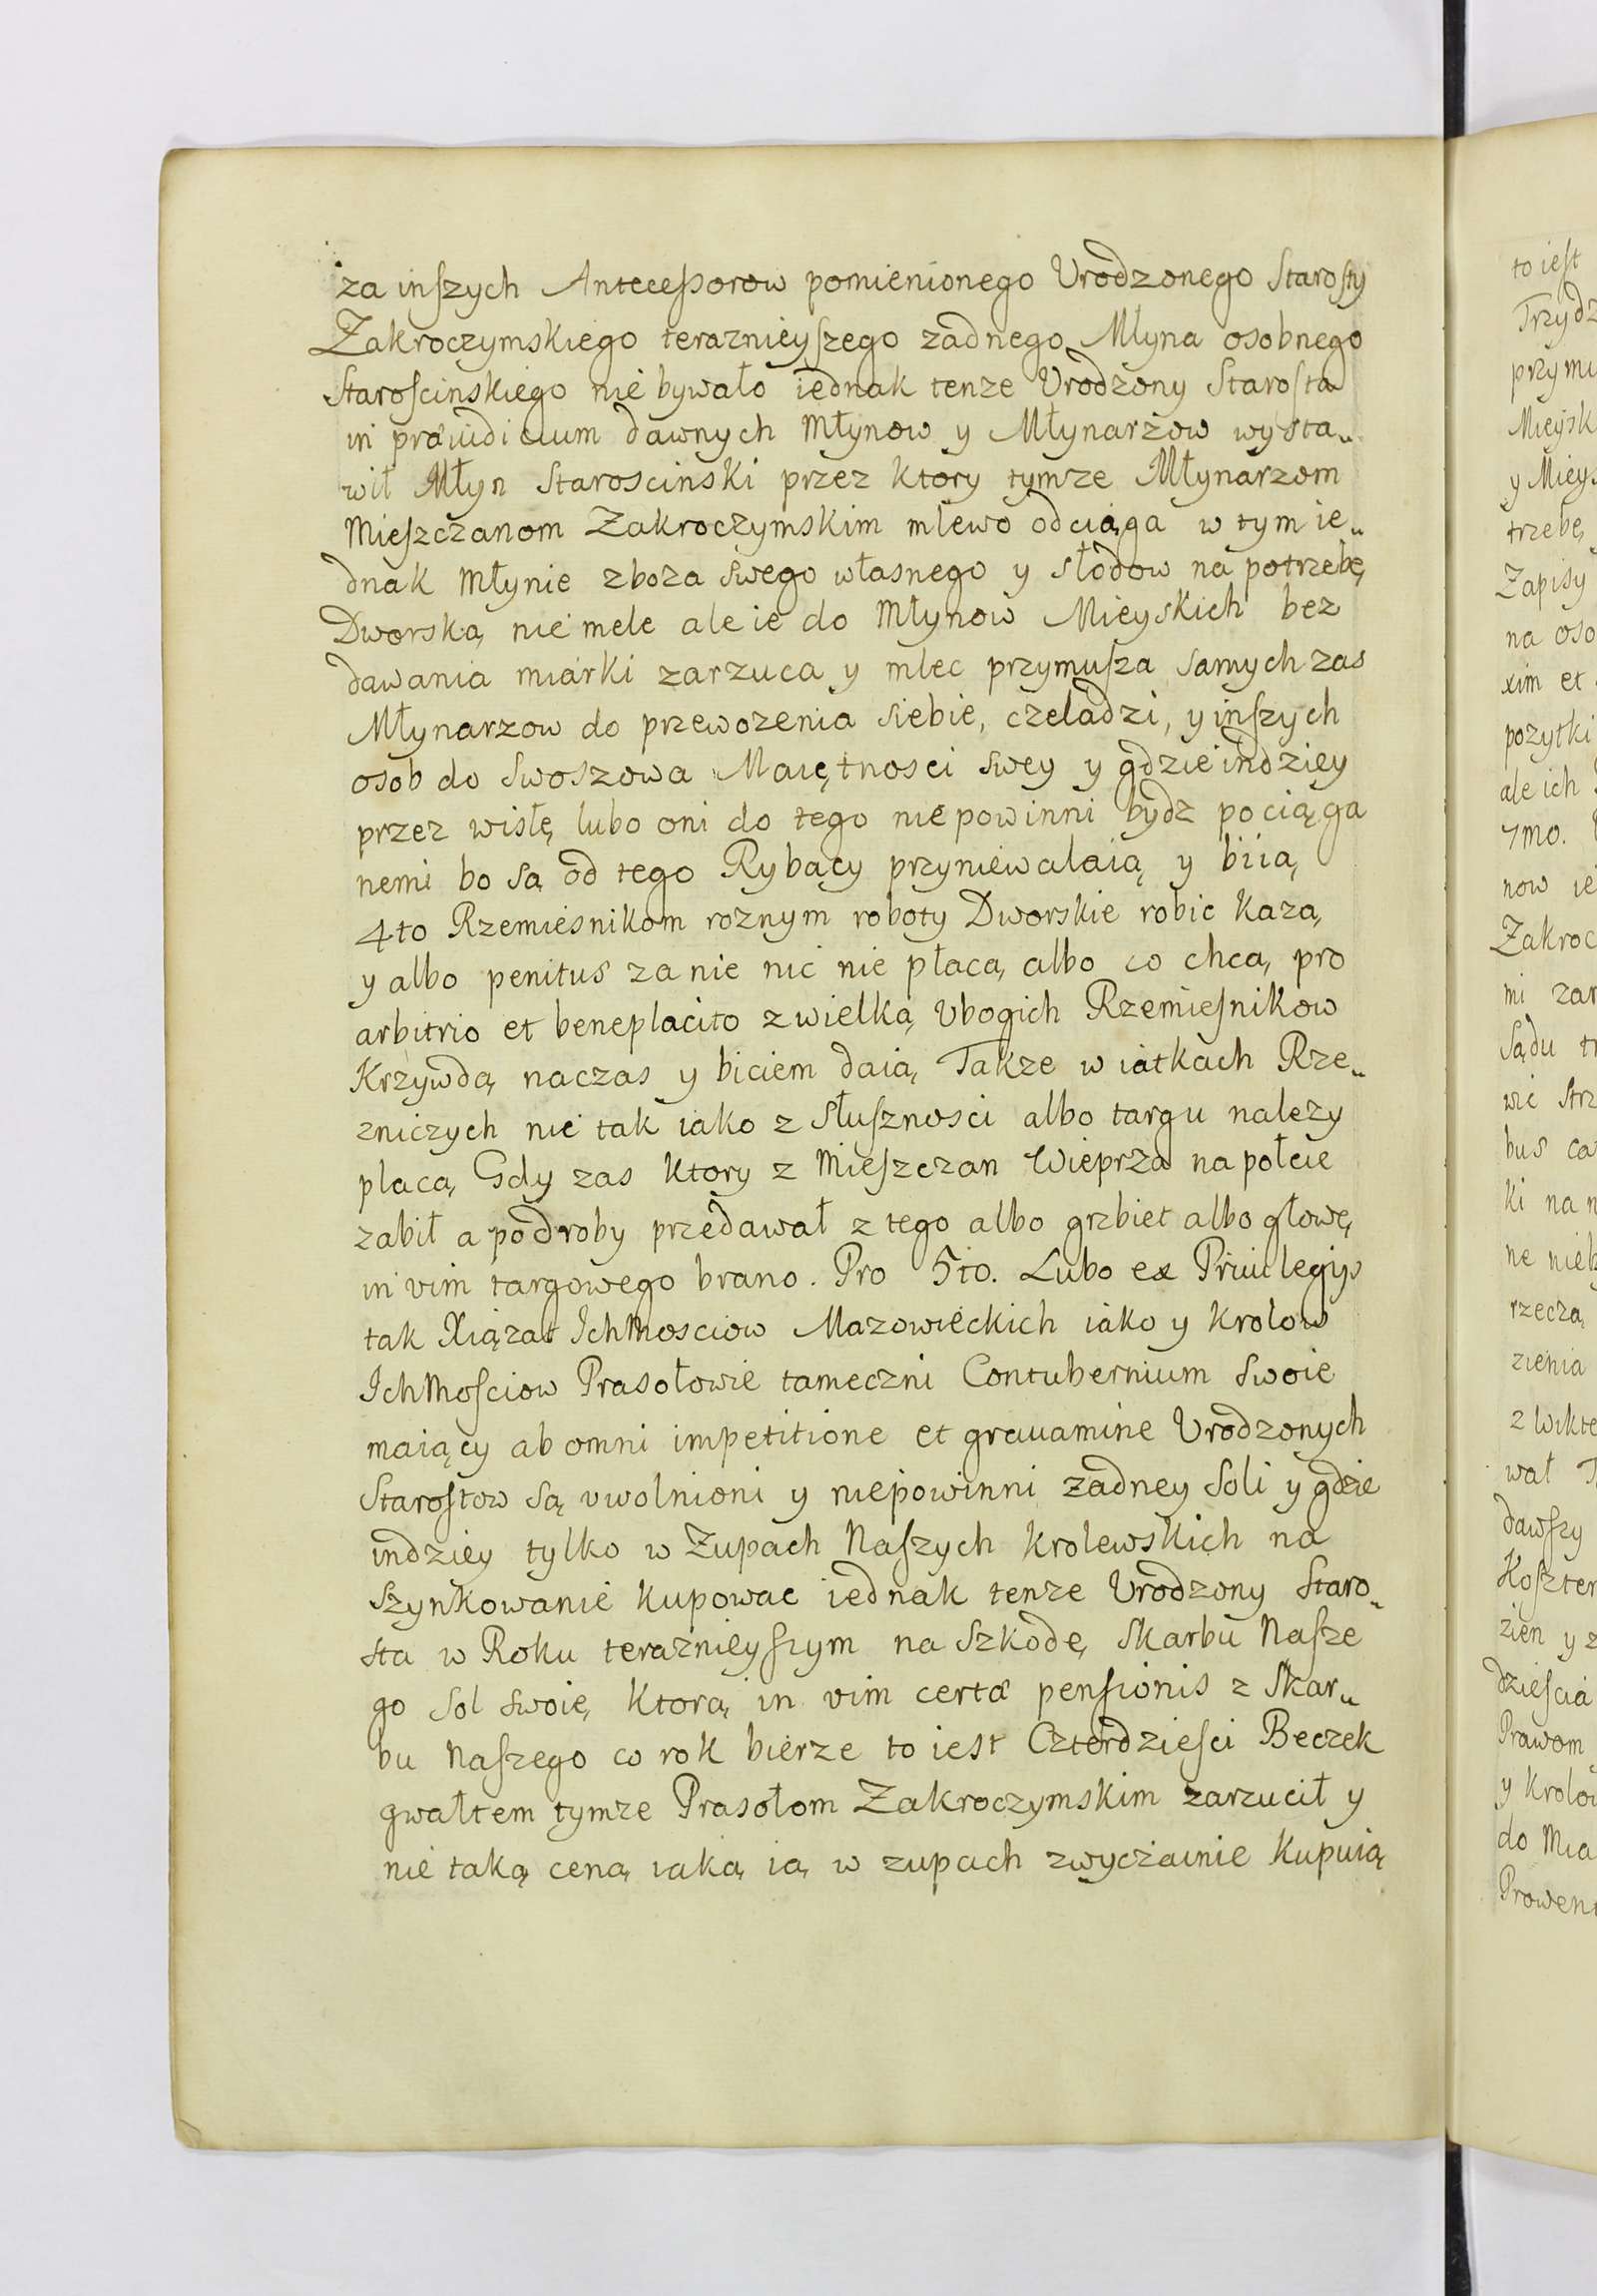 za inſzych Anteceſsorow pomienionego Vrodzonego Staroſty
Zakroczymskiego teraznieyſzego zadnego Młyna osobnego
Staroſcinskiego nie bywało iednak tenze Vrodzony Staroſta
in præiudicium dawnych Młynow y Młynarzow wysta„
wił Młyn Staroscinski przez ktory tymze Młynarzom
Mieſzczanom Zakroczymskim mlewo odciąga w tym ie„
dnak Młynie zboza swego własnego y słodow na potrzebę
Dworską nie mele ale ie do Młynow Mieyskich bez
dawania miarki zarzuca y mlec przymuſza samych zas
Młynarzow do przewozenia siebie, czeladzi, y inſzych
osob do Swoszowa Maiętnosci swey y gdzieindziey
przez wisłę lubo oni do tego nie powinni bydz pociąga
nemi bo są od tego Rybacy przyniewalaią y biią
4to Rzemiesnikom roznym roboty Dworskie robic kazą
y albo penitus za nie nic nie płacą albo co chcą pro
arbitrio et beneplacito z wielką Vbogich Rzemieſnikow
Krzywdą naczas y biciem daią Takze w iatkach Rze„
zniczych nie tak iako z słuſznosci albo targu nalezy
placą Gdy zas ktory z Mieſzczan Wieprza na połcie
zabił a podroby przedawał z tego albo grzbiet albo głowę
in vim targowego brano. Pro 5to. Lubo ex Priuilegijs
tak Xiązat IchMosciow Mazowieckich iako y Krolow
IchMoſciow Prasołowie tameczni Contubernium swoie
maiący ab omni impetitione et grauamine Vrodzonych
Staroſtow są vwolnioni y niepowinni zadney Soli y gdzie
indziey tylko w Zupach Naſzych krolewskich na
szynkowanie kupowac iednak tenze Vrodzony Staro„
sta w Roku teraznieyſzym na szkodę Skarbu Naſze
go Sol swoię ktorą in vim certæ penſionis z Skar„
bu Naſzego co rok bierze to iest Czterdzieſci Beczek
gwałtem tymze Prasołom Zakroczymskim zarzucił y
nie taką ceną iaką ią w zupach zwyczainie kupuią
to ieſt
Trzydz
przymu
Mieysk
y Mieys
trzebę
Zapisy
na oso
xim et
pozytki
ale ich
7mo.
now ie
Zakroc
mi zar
Sądu tr
wic strz
bus ca
ki na n
ne nieb
rzeczą
zienia
z Wikte
wał
dawſzy
Koſzter
zien y z
dzieſcia
Prawom
y Krolow
do Mia
Prowen